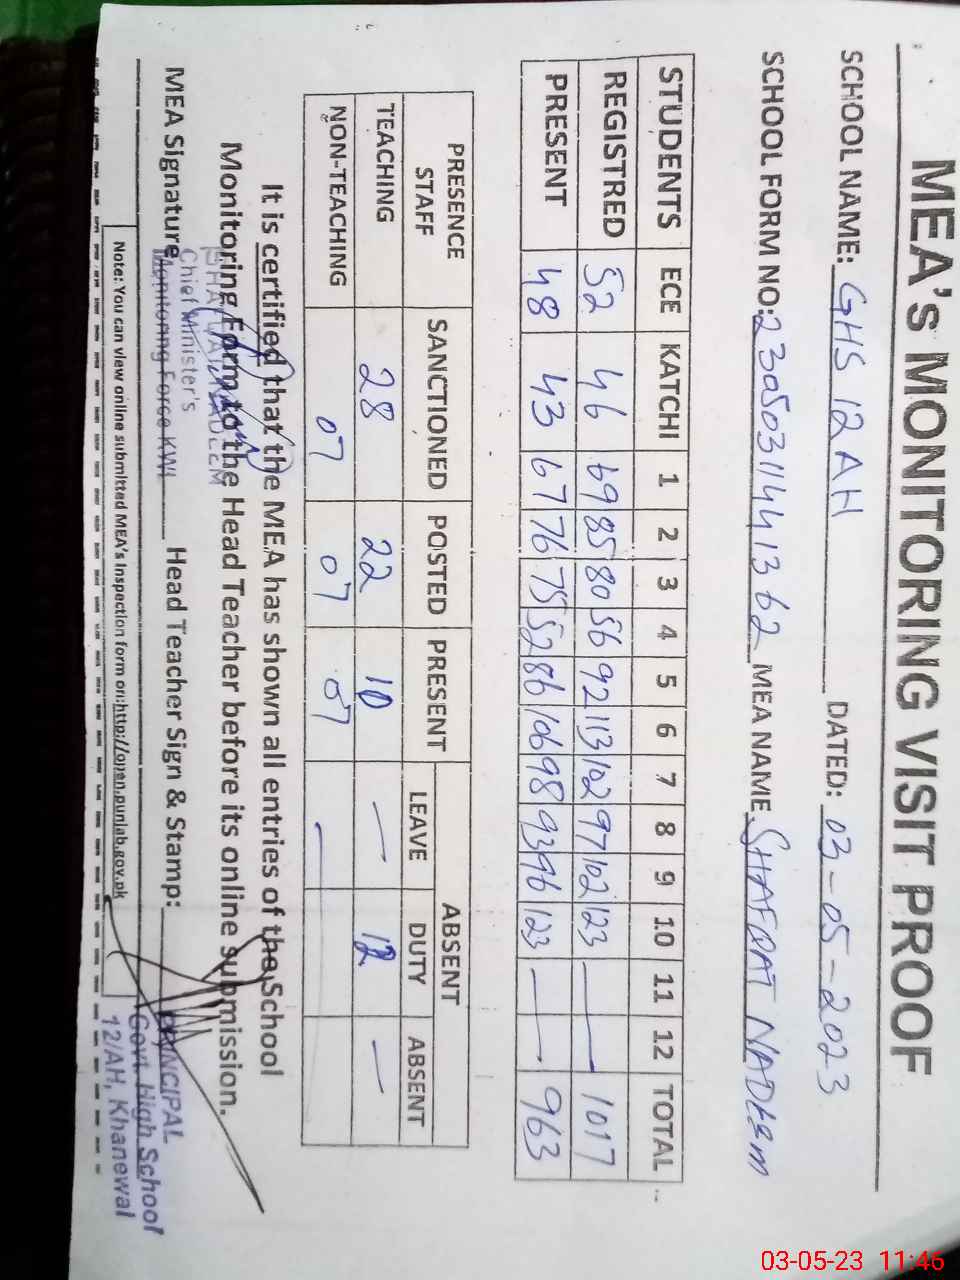 MEA's MONITORING VISIT PROOF
SCHOOL NAME: GHS 12 AH DATED: 03-05-2023
SCHOOL FORM NO: 23050311441362 MEA NAME SHAFQAT NADEEM
STUDENTS ECE KATCHI 1 2 3 4 5 6 7 8 9 10 11 12 TOTAL
REGISTRED 52 46 69 85 80 56 92 113 102 97 102 123 — — 1017
PRESENT 48 43 67 76 75 52 86 106 98 93 96 123 — — 963
PRESENCE STAFF SANCTIONED POSTED PRESENT ABSENT
LEAVE DUTY ABSENT
TEACHING 28 22 10 — 12 —
NON-TEACHING 07 07 07 —
It is certified that the MEA has shown all entries of the School
Monitoring Form to the Head Teacher before its online submission.
SHAFQAT NADEEM
Chief Minister's
Monitoring Force KWL
MEA Signature Head Teacher Sign & Stamp:
PRINCIPAL
Govt. High School
12/AH, Khanewal
Note: You can view online submitted MEA's Inspection form on:http://open.punjab.gov.pk
03-05-23 11:46